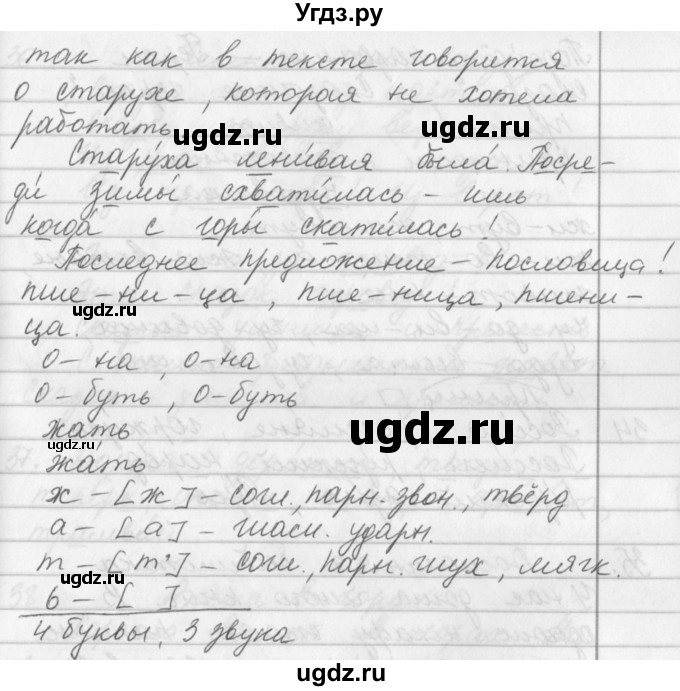 Угдз.ру
так как в тексте говорится
о старухе, которая не хотела
работать
ugdz.ru ugdz.ru
Стару́ха лени́вая была́. Посре-
ди́ зимы́ схвати́лась – ишь
когда́ с горы́ скати́лась!
Последнее предложение – пословица!
пше-ни-ца, пше-ница, пшени-
ца.
ugdz.ru
о-на, о-на
о-буть, о-буть
жать
ugdz.ru
ugdz.ru
жать
ж – [ж] – согл., парн. звон., твёрд
а – [а] – гласн. ударн.
т – [т'] – согл., парн. глух, мягк.
ugdz.ru
ь – [ ]
4 буквы, 3 звука
ugdz.ru
ugdz.ru